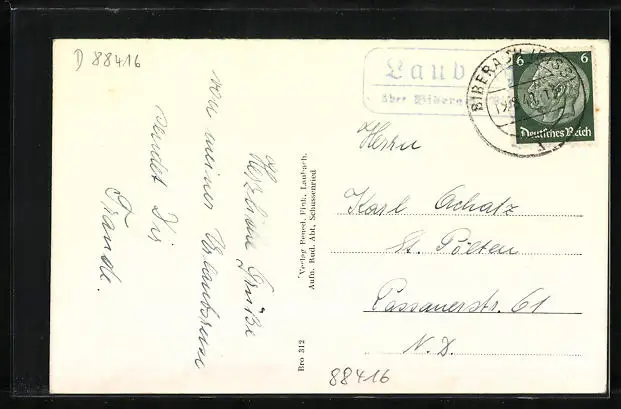 D 88416
Herzliche Grüße
von meiner Urlaubsreise
sendet Dir
Verlag Bened. Fink, Laubach.
Aufn. Rud. Abt, Schussenried
Bro 312
Laub
über Biberach
BIBERACH (RISS)
6 6
Deutsches Reich
Herrn
Karl Achatz
St. Pölten
Passauerstr. 61
N. D.
88416